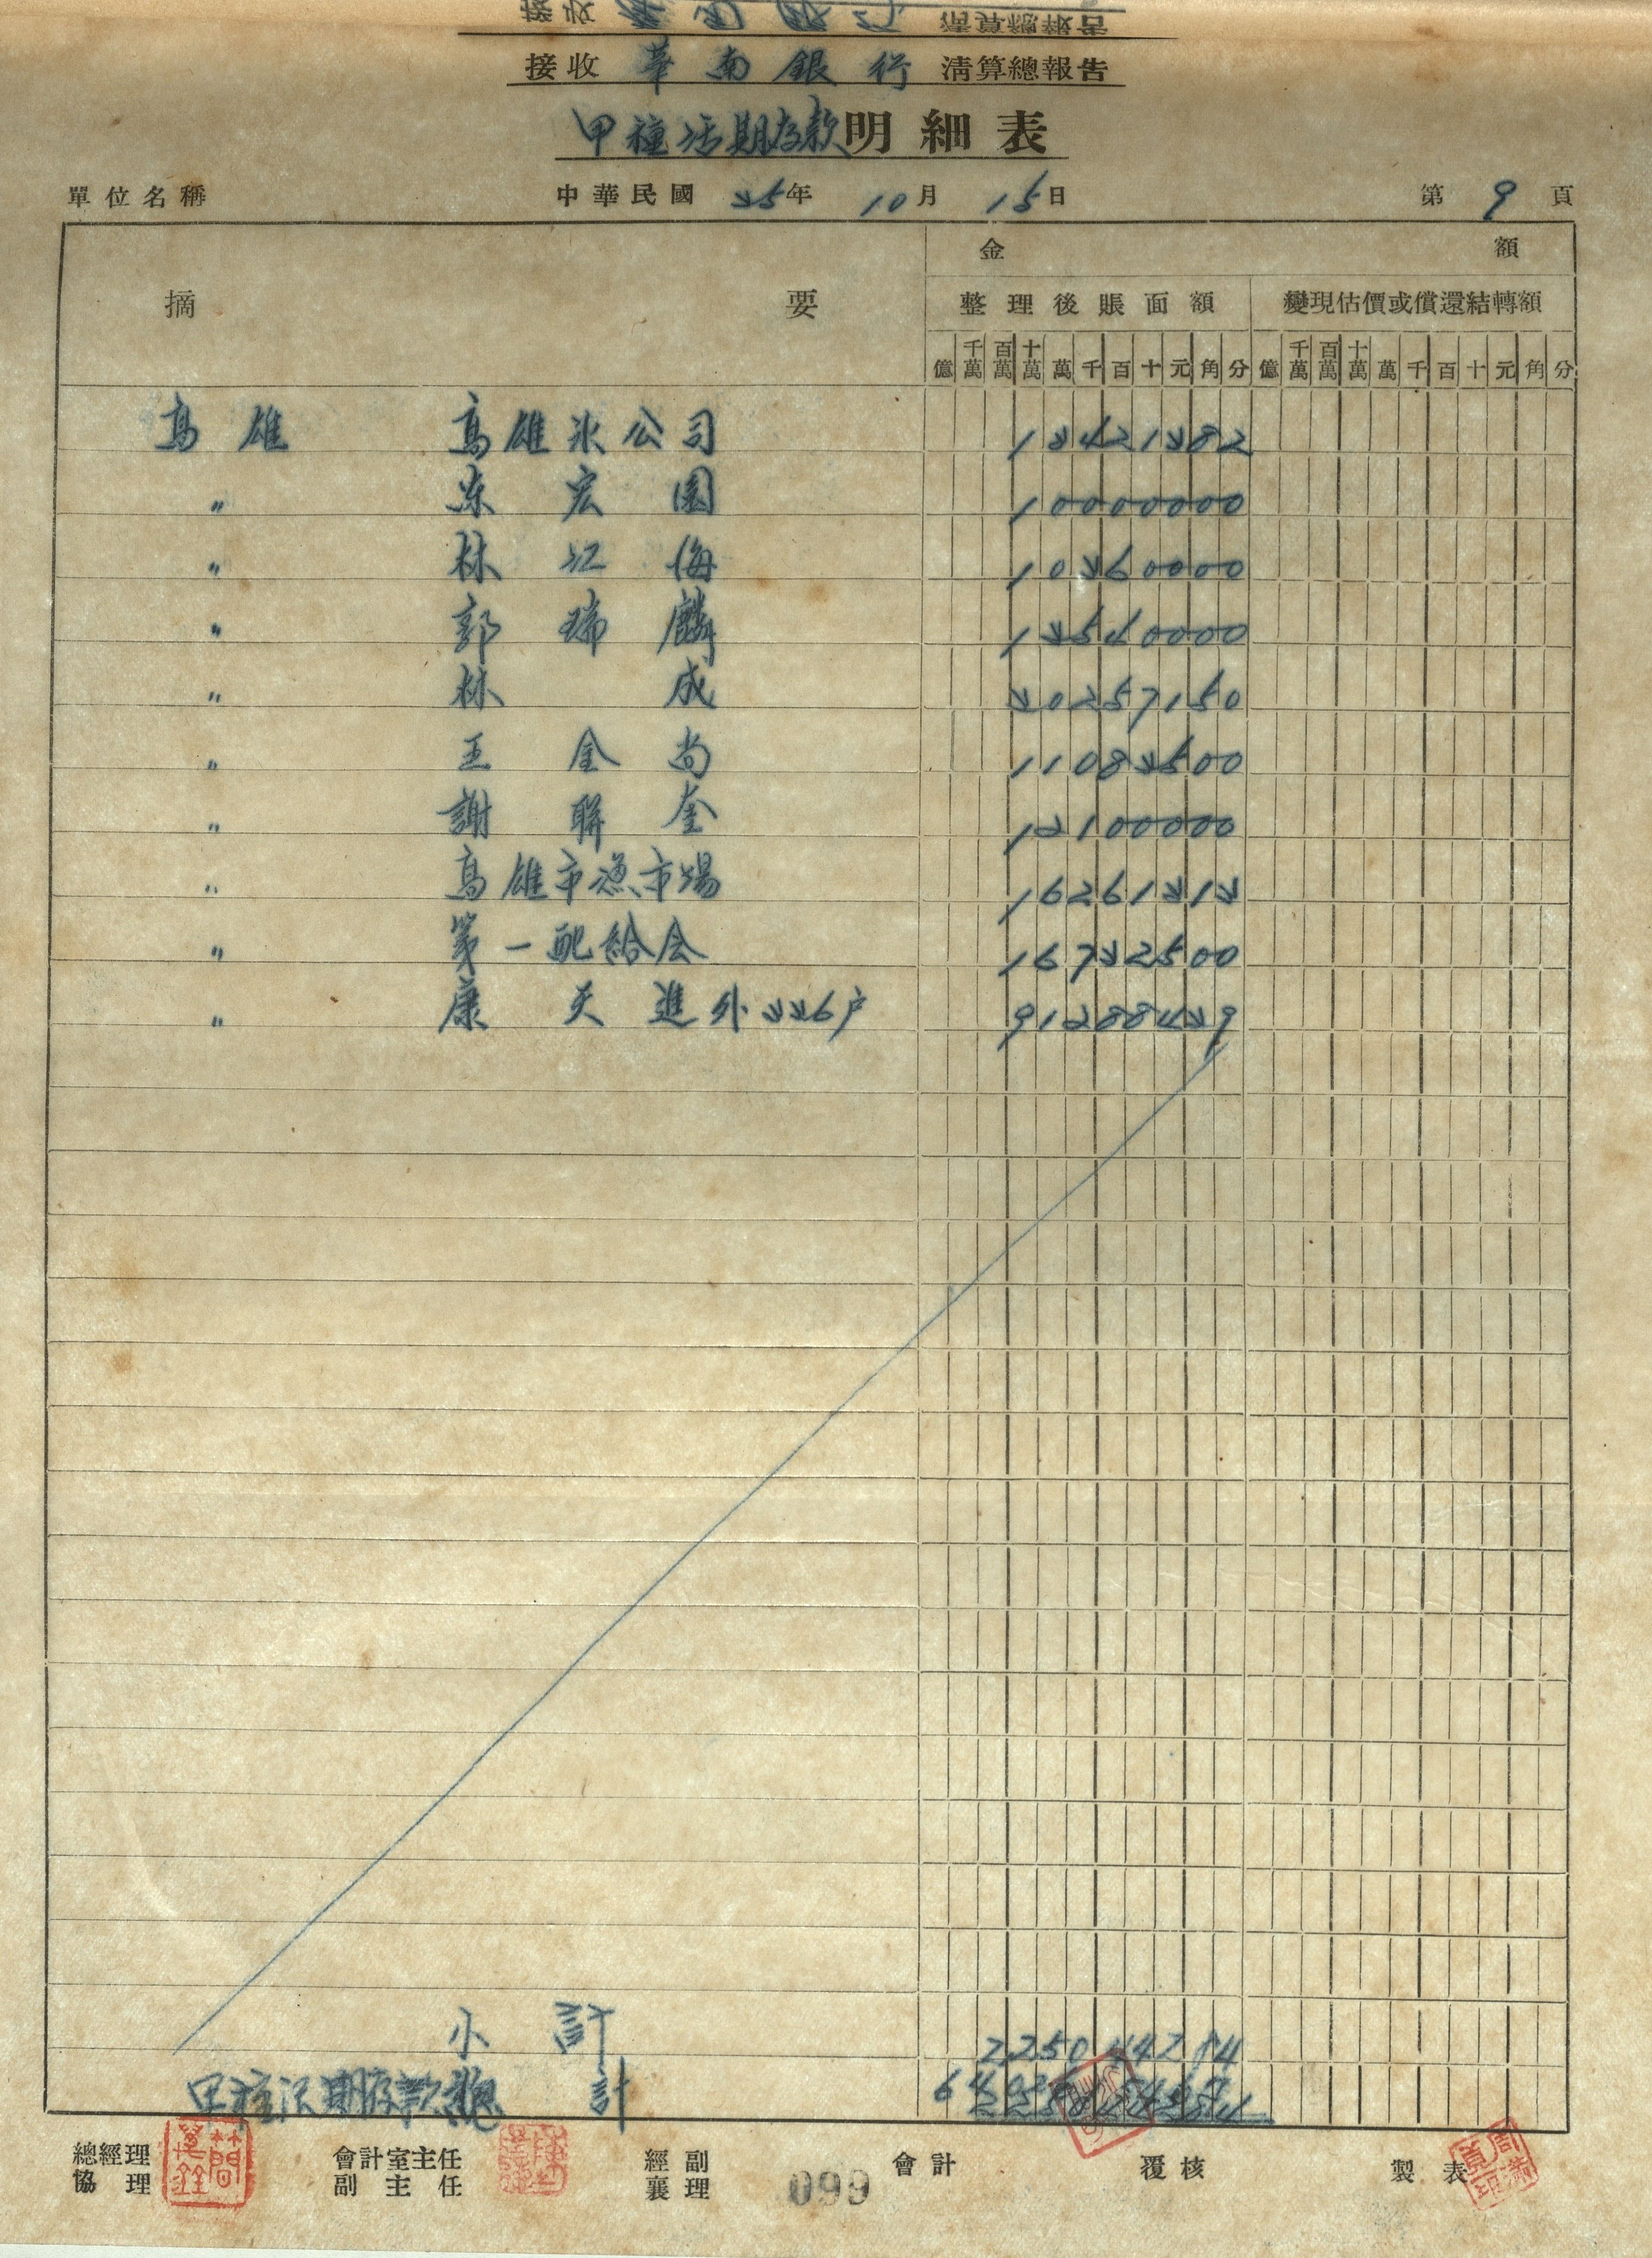 接收 華南銀行 清算總報告
接收 華南銀行 清算總報告
甲種活期存款明細表
單位名稱 中華民國 35年 10月 15日 第 9 頁
金額
摘要 整理後賬面額 變現估價或償還結轉額
億 千萬 百萬 十萬 萬 千 百 十 元 角 分 億 千萬 百萬 十萬 萬 千 百 十 元 角 分
高雄 高雄氷公司 13421382
〃 宏園 10000000
〃 林江海 10360000
〃 郭瑞麟 13540000
〃 林成 30257150
〃 王金尚 11083500
〃 謝聯奎 12100000
〃 高雄市漁市場 16261313
〃 第一配給会 16732500
〃 康天進外336户 91288439
小計 225044284
甲種活期存款總計
總經理 會計室主任 經副 會計 覆核 製表
協理 副主任 襄理
099